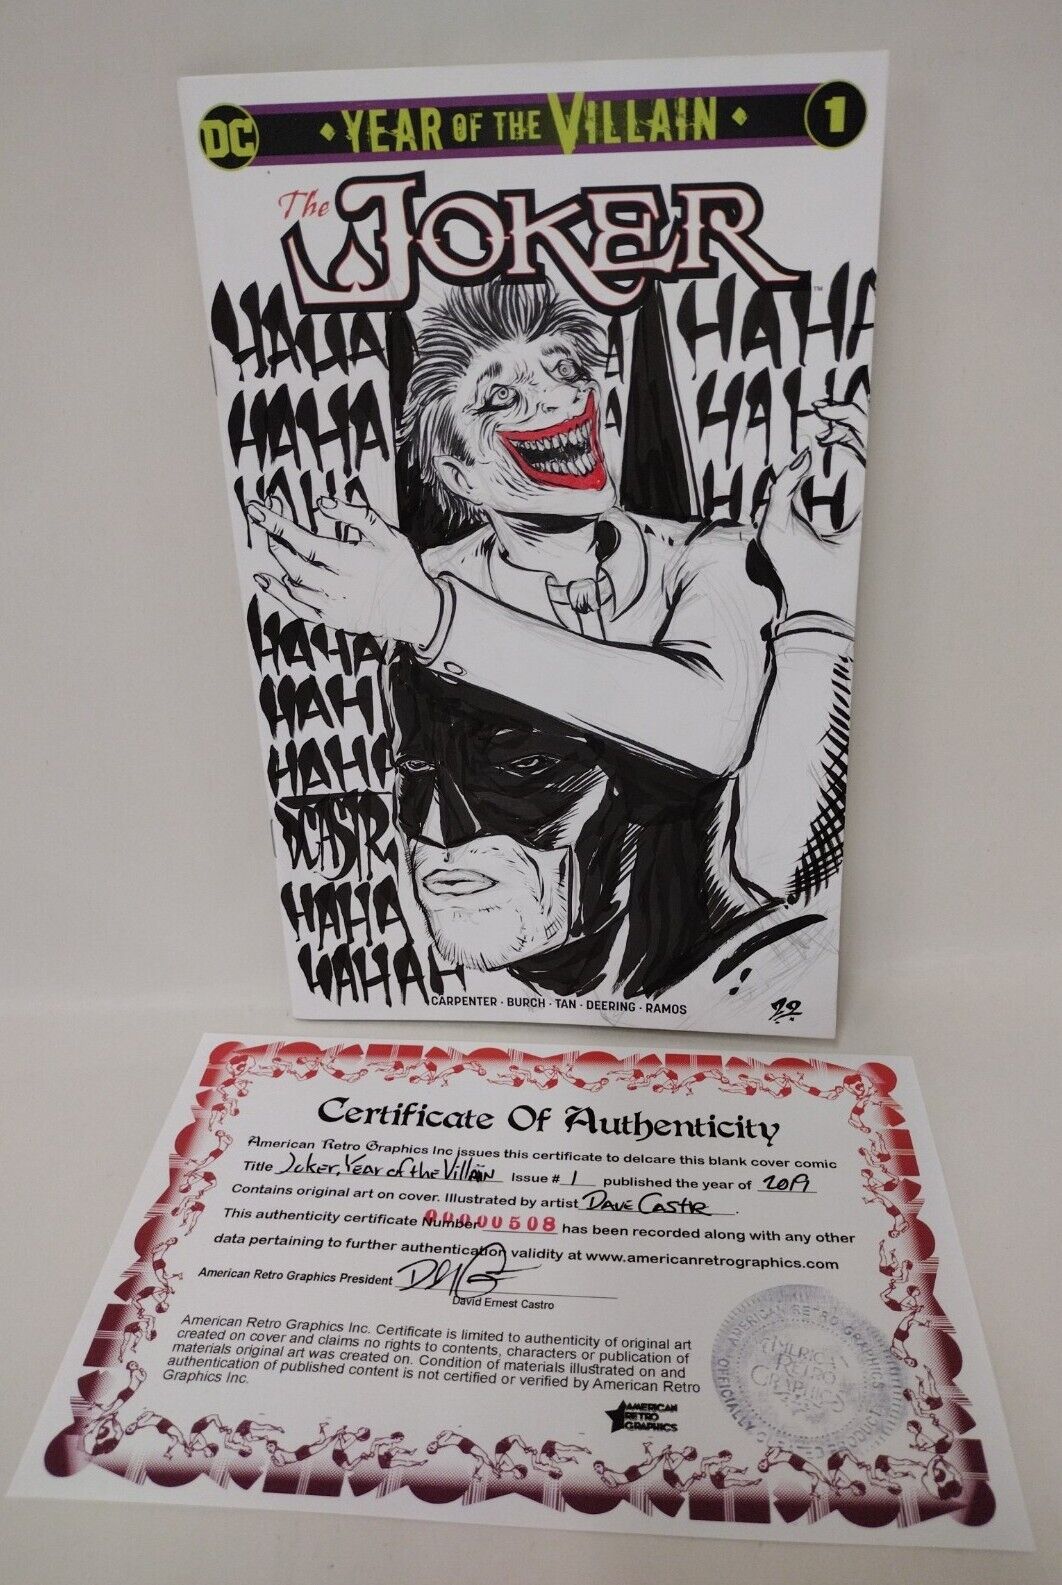 DC
YEAR OF THE VILLAIN
1
The JOKER
TM
HAHA HAHA
HAHA HAH
HAHA HAH
HAHA
HAH
HAHA
DCASTR
HAHA
HAHAH
CARPENTER · BURCH · TAN · DEERING · RAMOS
Certificate Of Authenticity
American Retro Graphics Inc issues this certificate to delcare this blank cover comic
Title Joker, Year of the Villain Issue # 1 published the year of 2019
Contains original art on cover. Illustrated by artist Dave Castr.
This authenticity certificate Number 00000508 has been recorded along with any other
data pertaining to further authentication validity at www.americanretrographics.com
American Retro Graphics President
David Ernest Castro
American Retro Graphics Inc. Certificate is limited to authenticity of original art
created on cover and claims no rights to contents, characters or publication of
materials original art was created on. Condition of materials illustrated on and
authentication of published content is not certified or verified by American Retro
Graphics Inc.
AMERICAN
RETRO
GRAPHICS
AMERICAN RETRO GRAPHICS
AMERICAN
RETRO
GRAPHICS